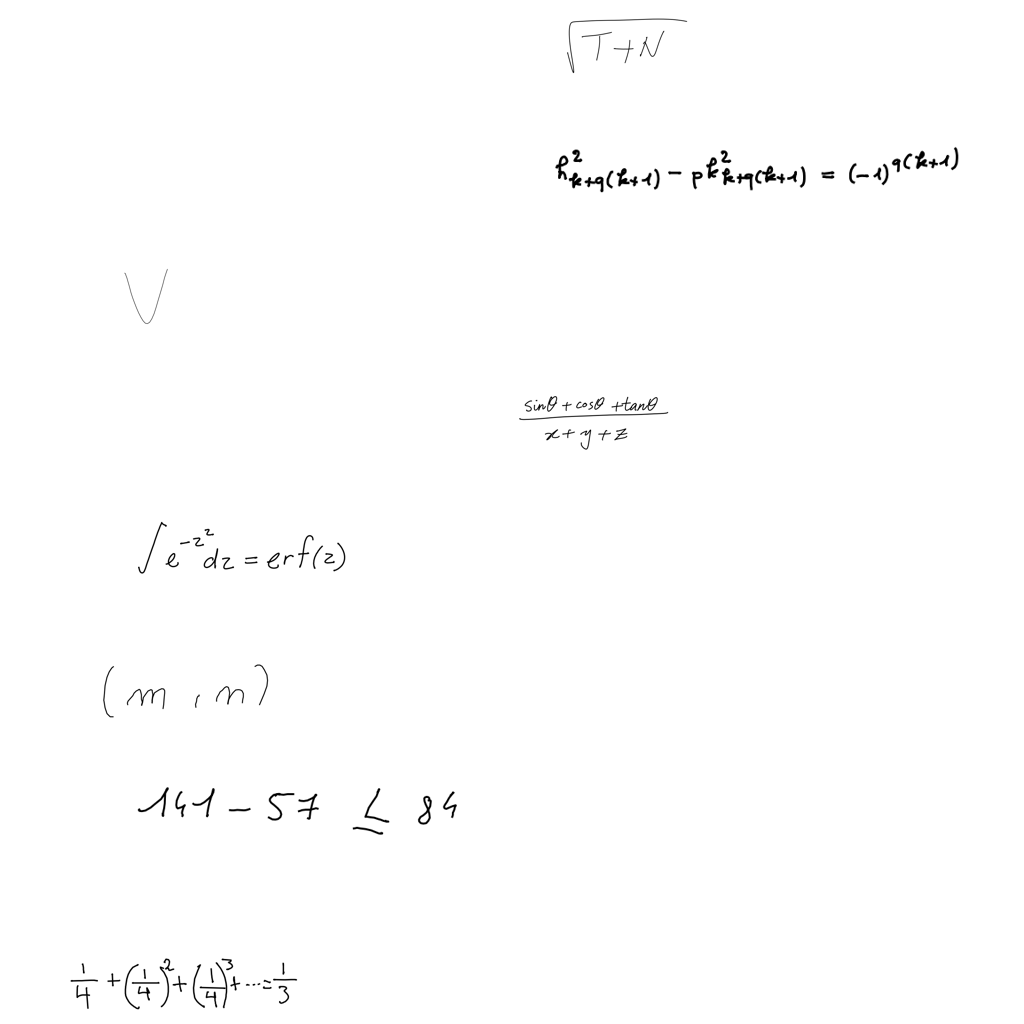 \sqrt{T+N}
h^2_{k+q(k+1)} - pk^2_{k+q(k+1)} = (-1)^{q(k+1)}
V
\frac{\sin\theta + \cos\theta + \tan\theta}{x+y+z}
\int e^{-z^2} dz = erf(z)
(m, n)
141 - 57 ≤ 84
\frac{1}{4} + (\frac{1}{4})^2 + (\frac{1}{4})^3 + \cdots = \frac{1}{3}